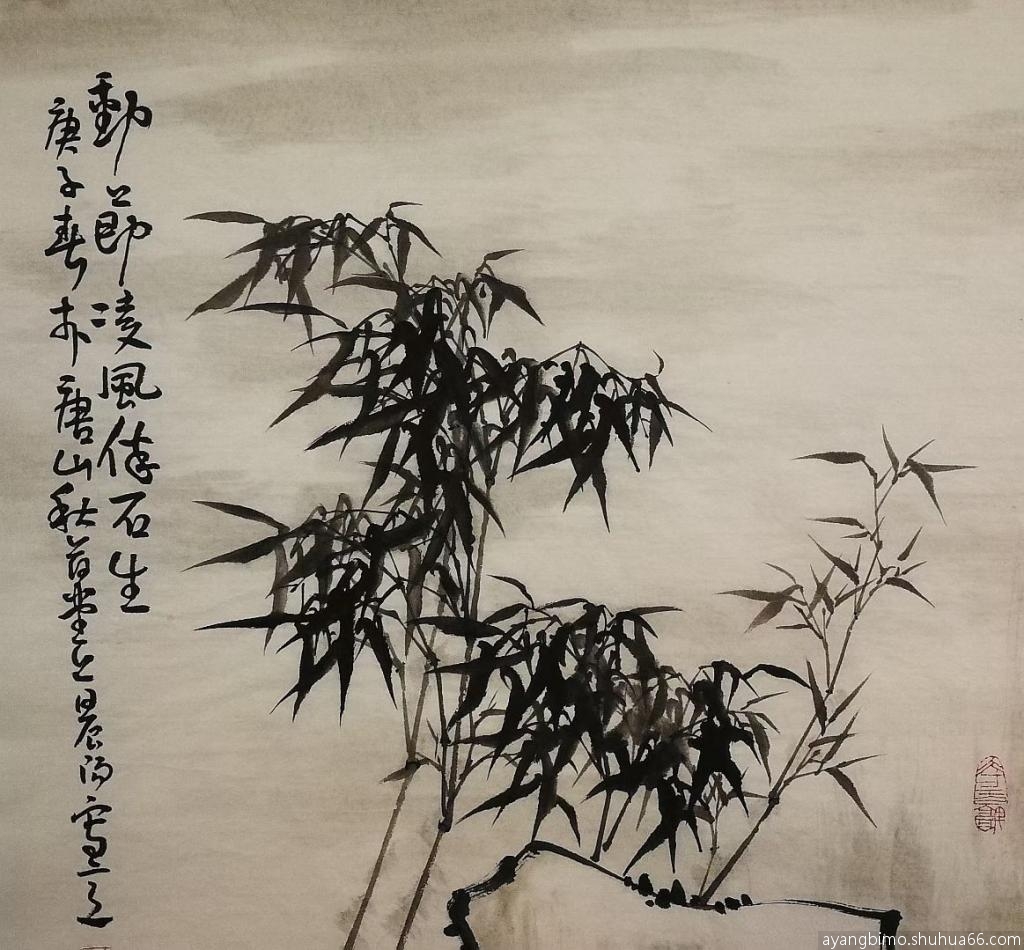 勁節凌風倚石生
庚子春於唐山秋堂晨
ayangbimo.shuhua66.com